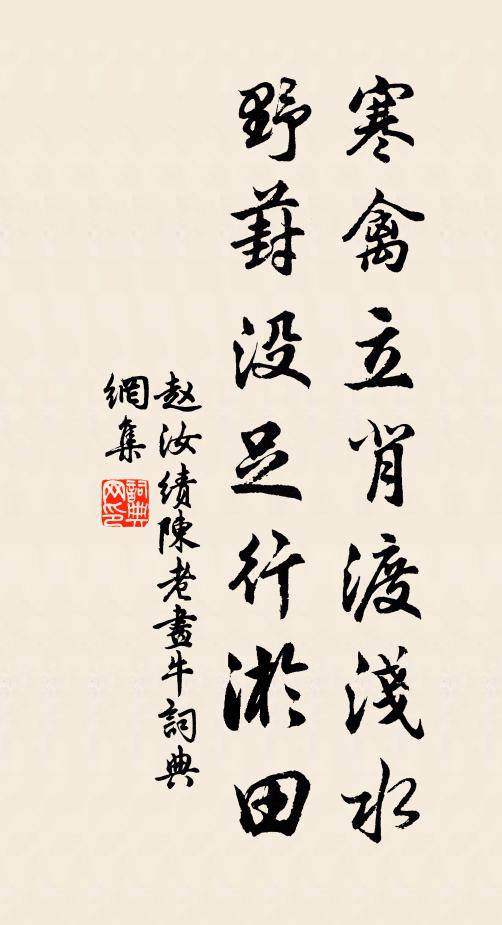 寒禽立背渡淺水
野葑没足行淤田
赵汝績陳老畫牛詞典
網集
詞典
网印